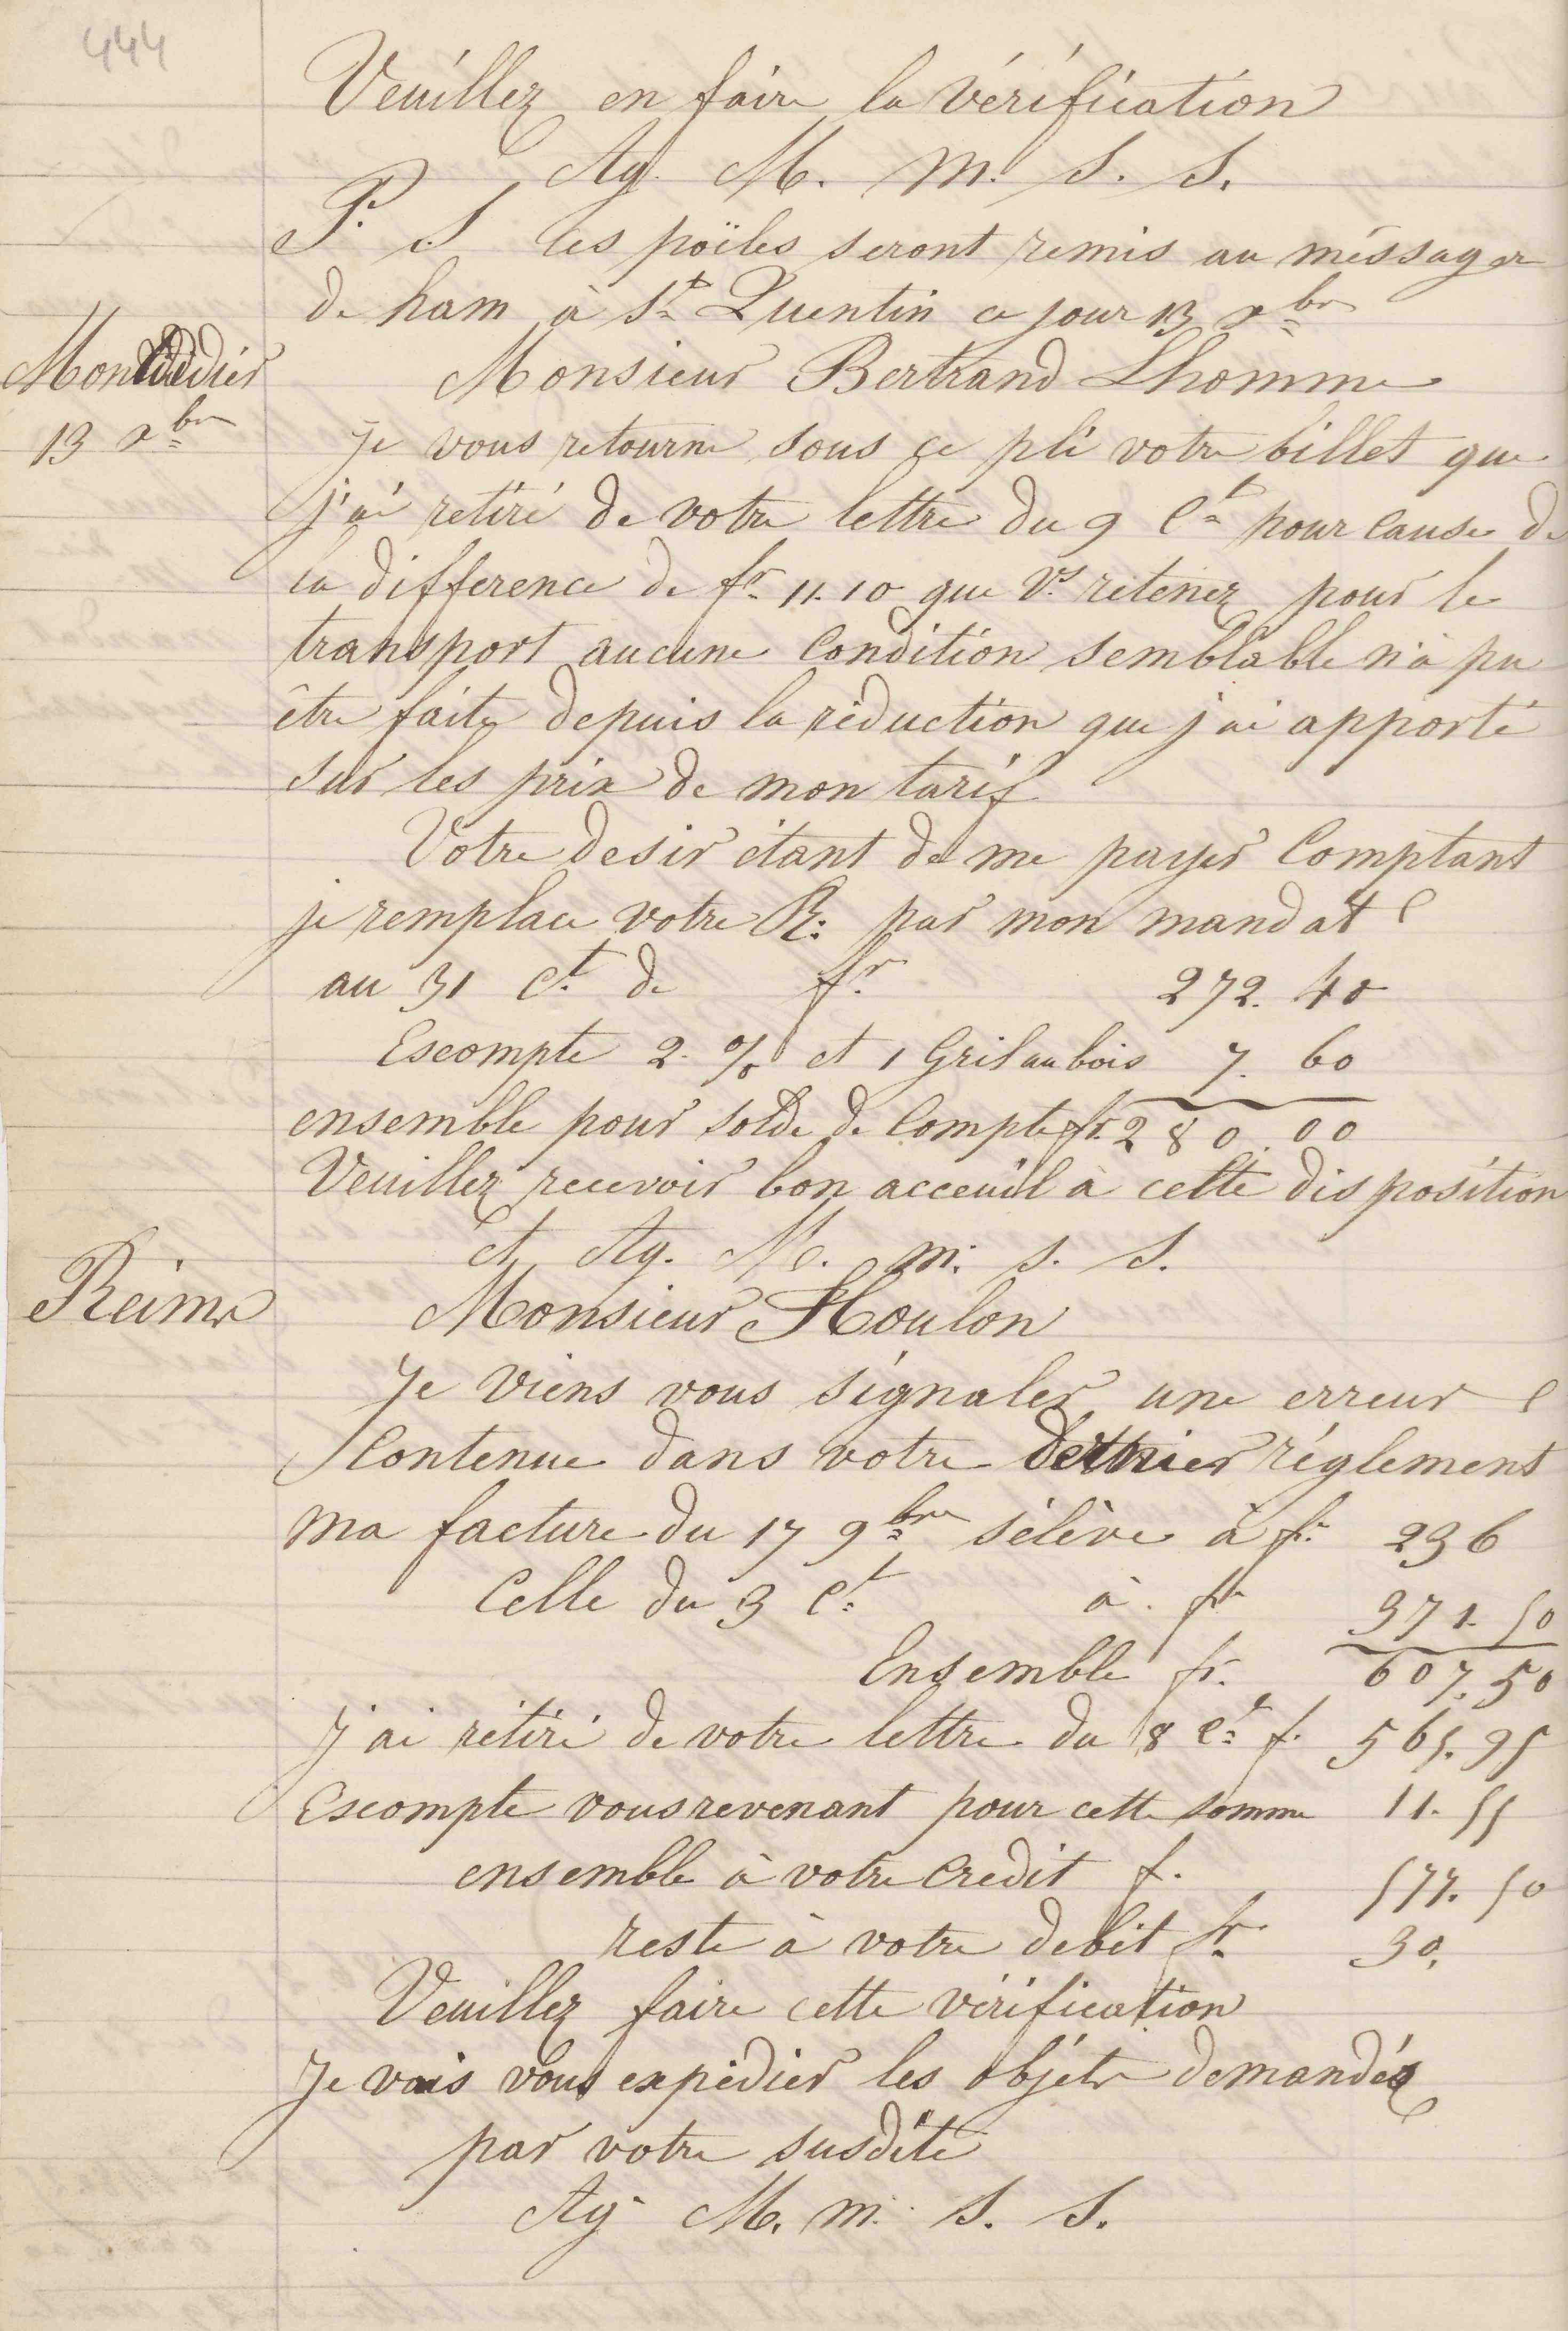 444
Veuillez en faire la vérification
Ag. M. m. s. s.
P. S les poïles seront remis au méssager
de ham à St Quentin ce jour 13 xbre
Montdidier
Monsieur Bertrand Lhomme
13 xbre
Je vous retourne sous ce pli votre billet que
j'ai retiré de votre lettre du 9 Ct pour cause de
la difference de fr. 11.10 que Vs retenez pour le
transport aucune Condition semblable n'a pu
être faite depuis la réduction que j'ai apporté
sur les prix de mon tarif
Votre desir étant de me payer Comptant
je remplace votre R: par mon mandat
au 31 Ct de fr. 272. 40
Escompte 2. % et 1 Gril au bois 7. 60
ensemble pour solde de Compte fr. 280.00
Veuillez recevoir bon acceuil à cette disposition
et Ag. M. m. s. s.
Reims
Monsieur Houlon
Je viens vous signaler une erreur
Contenue dans votre dernier réglement
ma facture du 17 9bre s'élève à fr. 236
Celle du 3 Ct à fr 371. 50
Ensemble fr. 607. 50
J'ai rétiré de votre lettre du 8 Ct f. 565. 95
Escompte vous revenant pour cette somme 11. 55
ensemble à votre Credit f. 577. 50
reste à votre debit fr. 30.
Veuillez faire cette vérification
Je vais vous expédier les objets demandés
par votre susdite
Ag M. m. s. s.